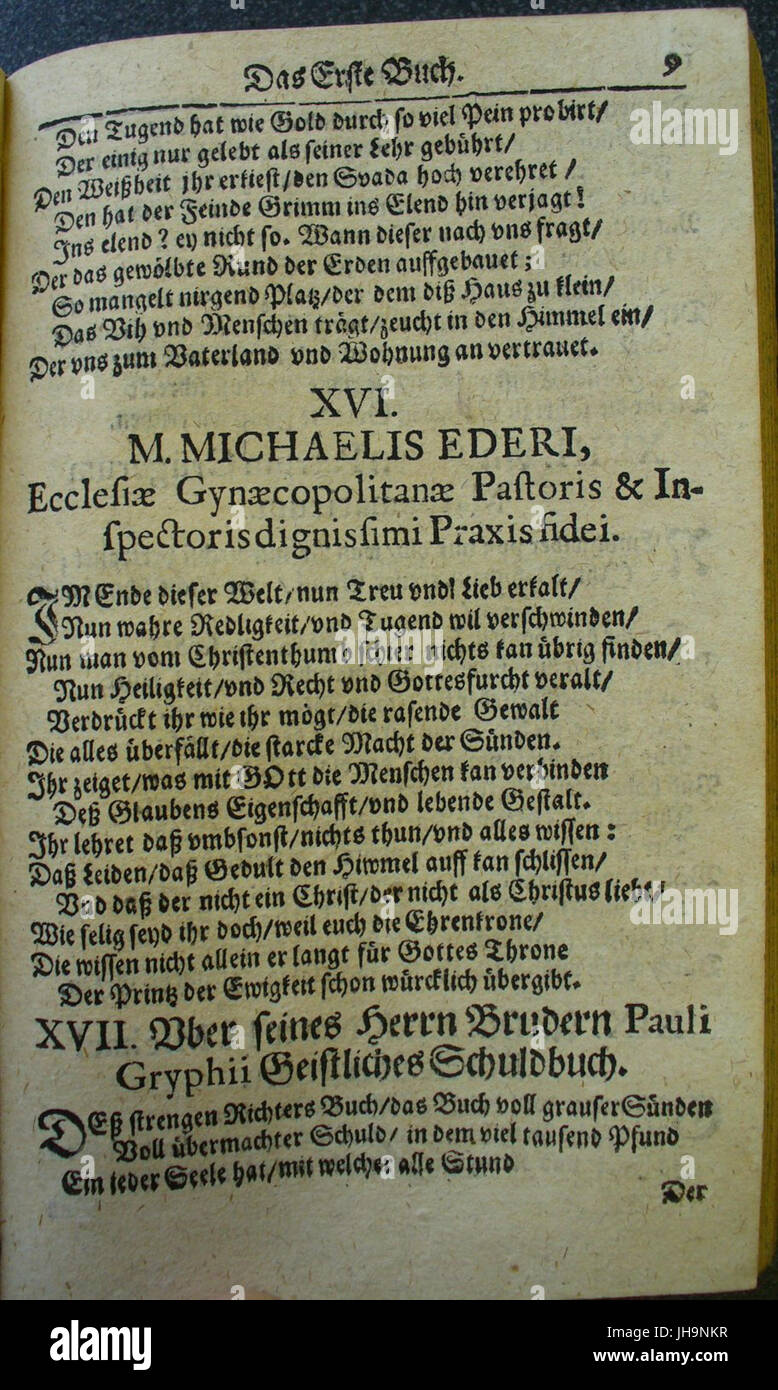 Das Erste Buch. 9
Den Tugend hat wie Gold durch so viel Pein probirt/
Der einig nur gelebt als seiner Lehr gebührt/
Den Weißheit jhr erkiest/den Svada hoch verehret/
Den hat der Feinde Grimm ins Elend hin verjagt!
Ins elend? ey nicht so. Wann dieser nach vns fragt/
Der das gewölbte Rund der Erden auffgebauet;
So mangelt nirgend Platz/der dem diß Haus zu klein/
Das Vih vnd Menschen trägt/zeucht in den Himmel ein/
Der vns zum Vaterland vnd Wohnung anvertrauet.
XVI.
M. MICHAELIS EDERI,
Ecclesiæ Gynæcopolitanæ Pastoris & In-
spectoris dignissimi Praxis fidei.
IM Ende dieser Welt/nun Treu vnd Lieb erkalt/
Nun wahre Redligkeit/vnd Tugend wil verschwinden/
Nun man vom Christenthumb schier nichts kan übrig finden/
Nun Heiligkeit/vnd Recht vnd Gottesfurcht veralt/
Verdrückt ihr wie ihr mögt/die rasende Gewalt
Die alles überfällt/die starcke Macht der Sünden.
Ihr zeiget/was mit GOtt die Menschen kan verbinden
Deß Glaubens Eigenschafft/vnd lebende Gestalt.
Ihr lehret daß vmbsonst/nichts thun/vnd alles wissen:
Daß Leiden/daß Gedult den Himmel auff kan schlissen/
Vnd daß der nicht ein Christ/der nicht als Christus liebt/
Wie selig seyd ihr doch/weil euch die Ehrenkrone/
Die wissen nicht allein erlangt für Gottes Throne
Der Printz der Ewigkeit schon würcklich übergibt.
XVII. Vber seines Herrn Brudern Pauli
Gryphii Geistliches Schuldbuch.
DEß strengen Richters Buch/das Buch voll grauser Sünden
Voll übermachter Schuld/ in dem viel tausend Pfund
Ein jeder Seele hat/mit welcher alle Stund
Der
alamy
alamy
alamy
Image ID: JH9NKR
www.alamy.com